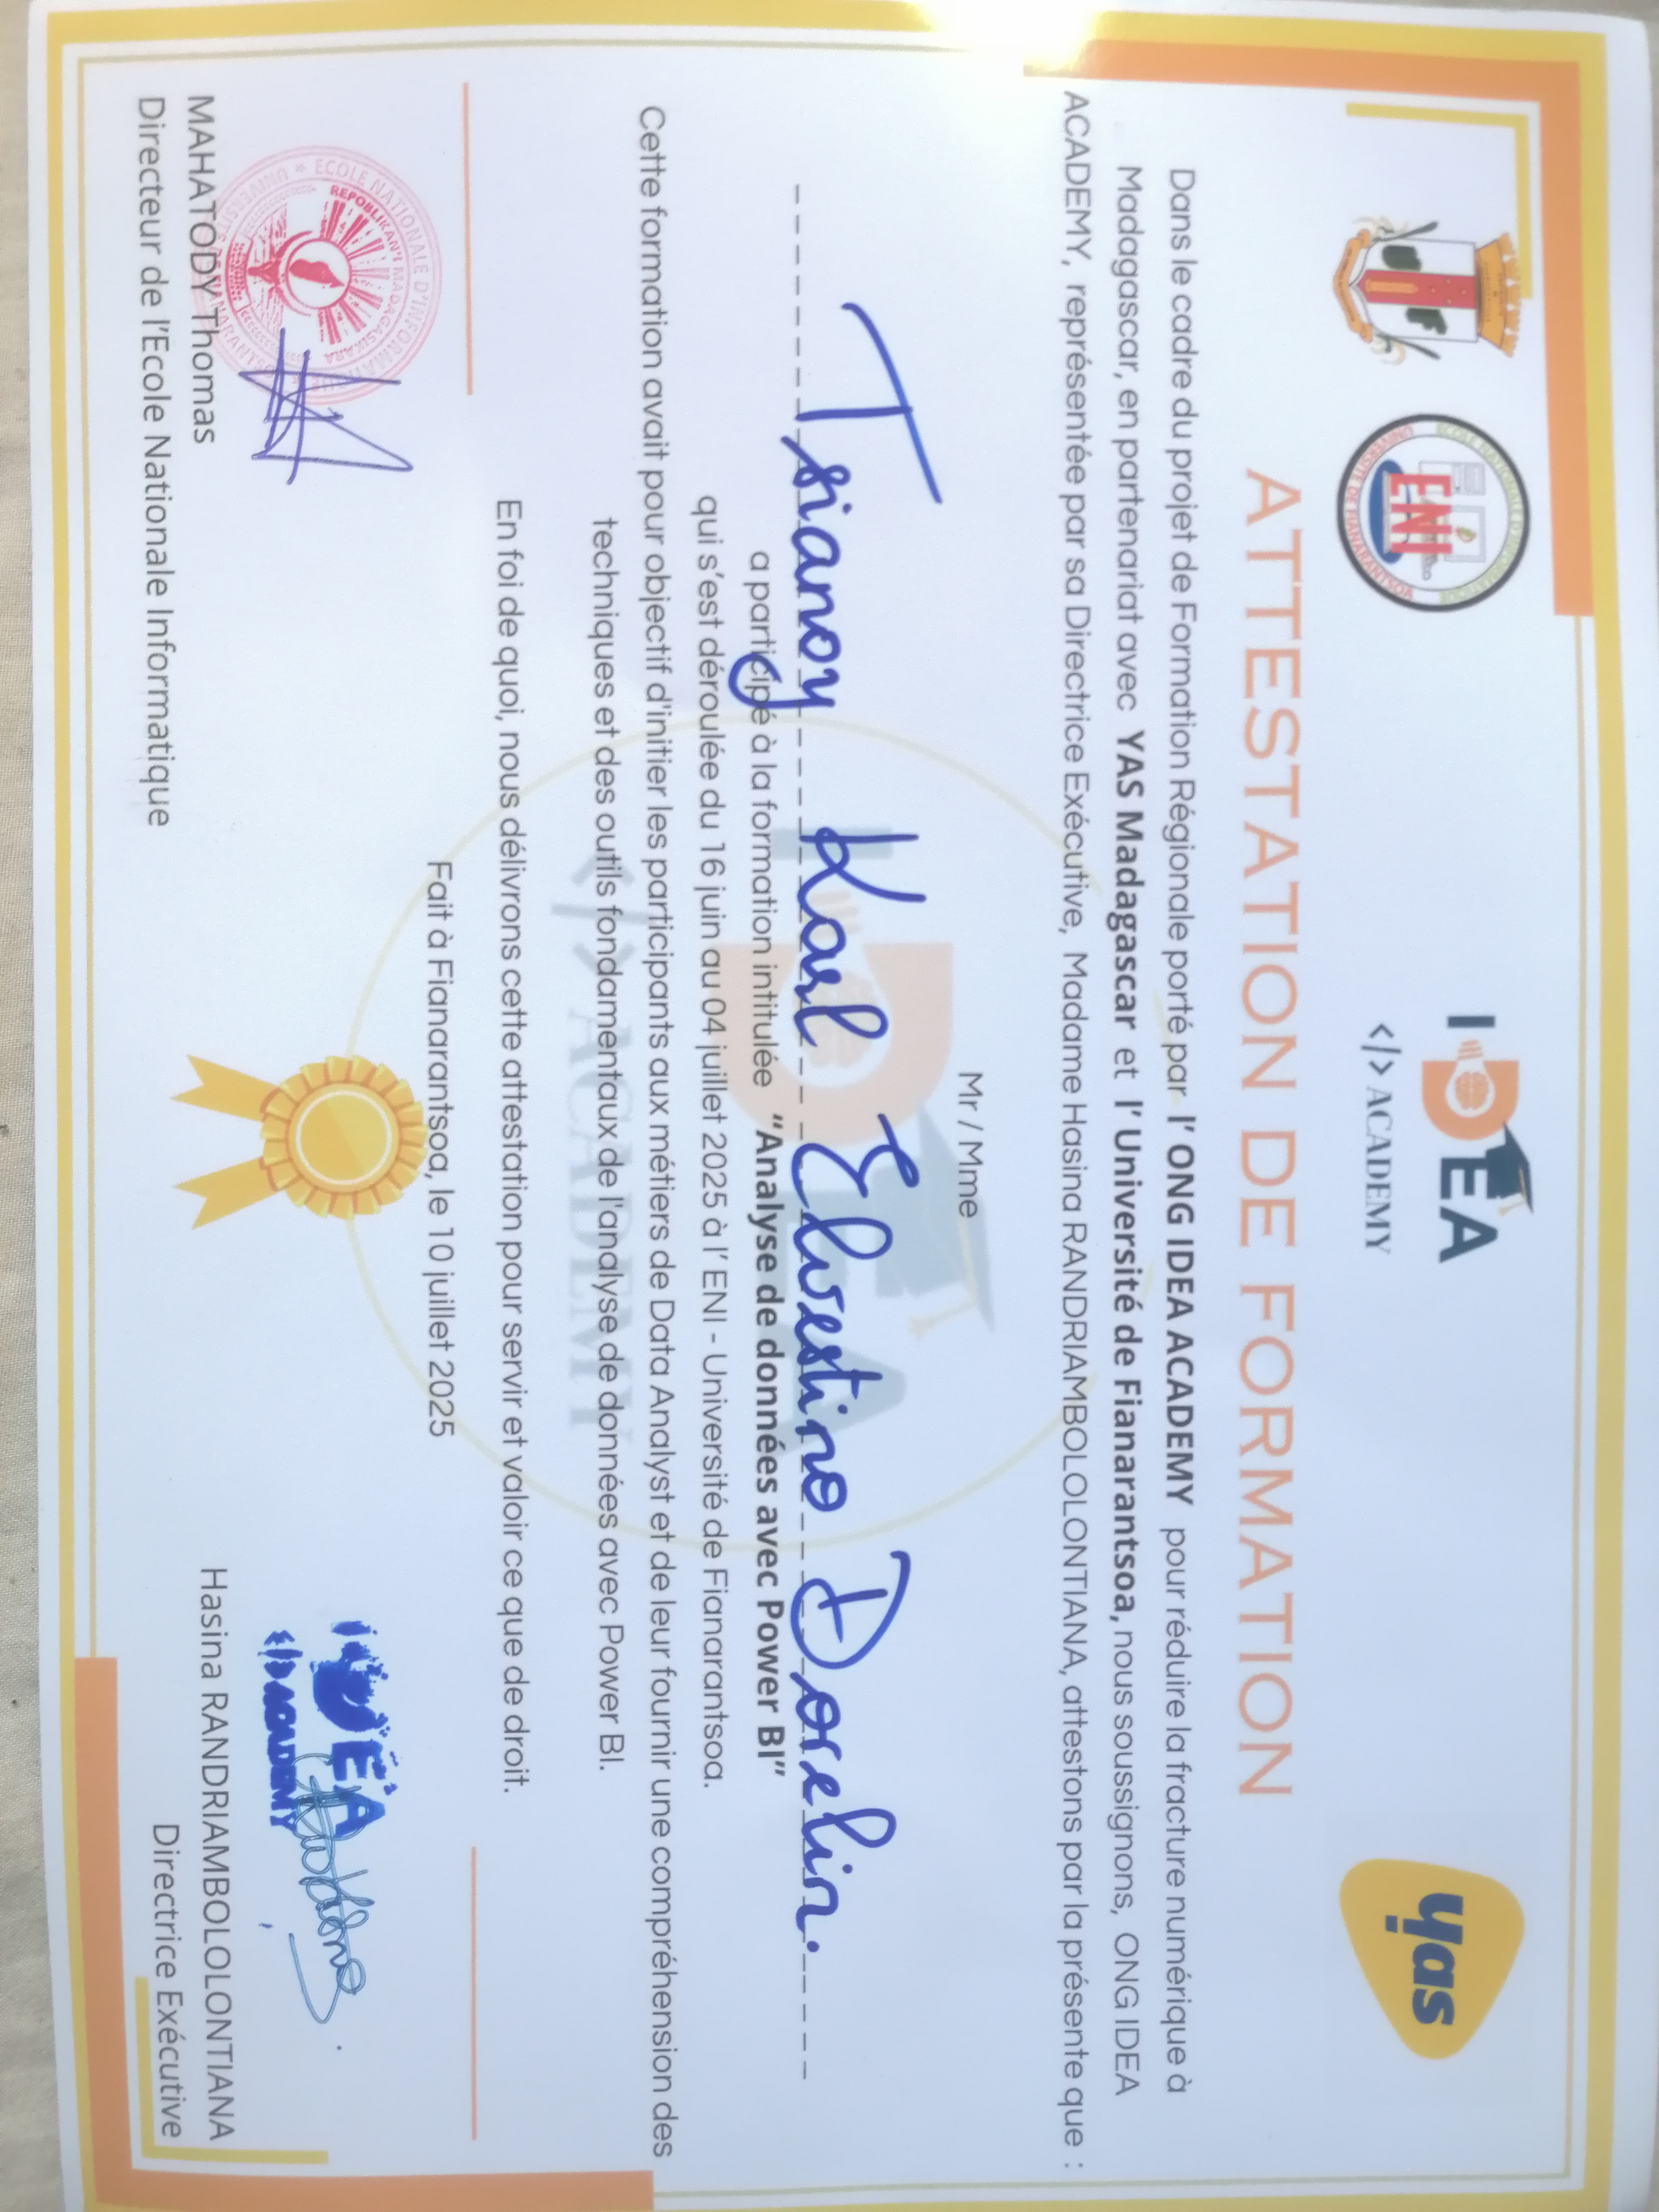 ECOLE NATIONALE D'INFORMATIQUE
ENI
UNIVERSITE DE FIANARANTSOA
IDEA
</> ACADEMY
yas
ATTESTATION DE FORMATION
Dans le cadre du projet de Formation Régionale porté par l' ONG IDEA ACADEMY pour réduire la fracture numérique à
Madagascar, en partenariat avec YAS Madagascar et l' Université de Fianarantsoa, nous soussignons, ONG IDEA
ACADEMY, représentée par sa Directrice Exécutive, Madame Hasina RANDRIAMBOLOLONTIANA, attestons par la présente que :
Mr / Mme
Tsianoy Karl Elvestino Dorelin.
a participé à la formation intitulée “Analyse de données avec Power BI”
qui s’est déroulée du 16 juin au 04 juillet 2025 à l’ ENI - Université de Fianarantsoa.
Cette formation avait pour objectif d'initier les participants aux métiers de Data Analyst et de leur fournir une compréhension des
techniques et des outils fondamentaux de l'analyse de données avec Power BI.
En foi de quoi, nous délivrons cette attestation pour servir et valoir ce que de droit.
Fait à Fianarantsoa, le 10 juillet 2025
ECOLE NATIONALE D'INFORMATIQUE
REPOBLIKAN'I MADAGASIKARA
UNIVERSITE DE FIANARANTSOA
IDEA
</> ACADEMY
MAHATODY Thomas
Directeur de l’Ecole Nationale Informatique
Hasina RANDRIAMBOLOLONTIANA
Directrice Exécutive